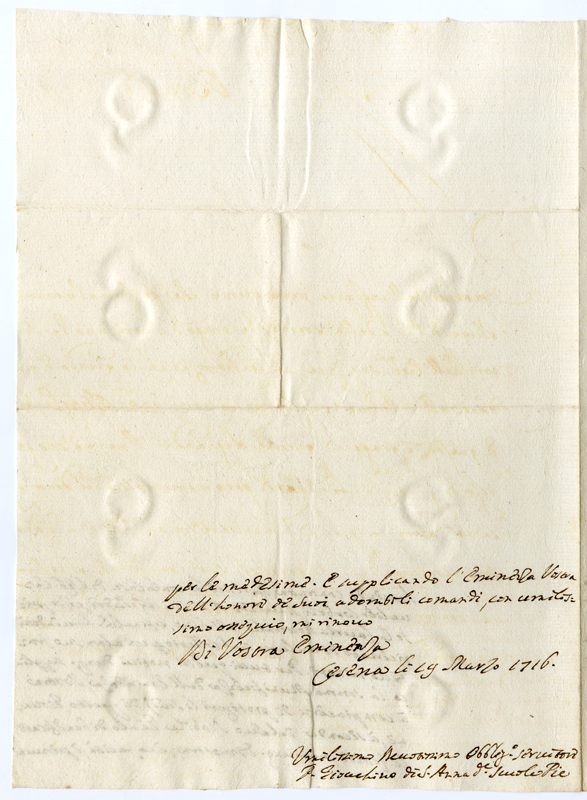 per le medesime. E supplicando l'Eminenza Vostra
dell'honore de suoi adorabili comandi, con umilis-
simo ossequio, mi rinovo
Di Vostra Eminenza
Cesena li 19 Marzo 1716.
Umilissimo Devotissimo Obblig.o servitore
P. Gioachino di S. Anna d.e Scuole Pie